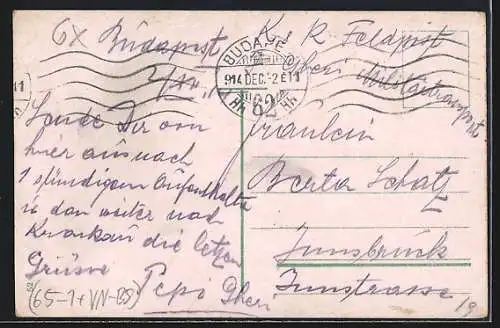 6x Budapest
2/XII.
Sende Dir von
hier aus nach
1 stündigem Aufenthalte
u dan weiter nach
Krakau die letzen
Grüsse Pepi
(65-1+VN-BS)
BUDAPEST
914 DEC. -2 E11
62
K. u K Feldpost
Militärtransport
Fräulein
Berta Schatz
Innsbruck
Innstrasse 19